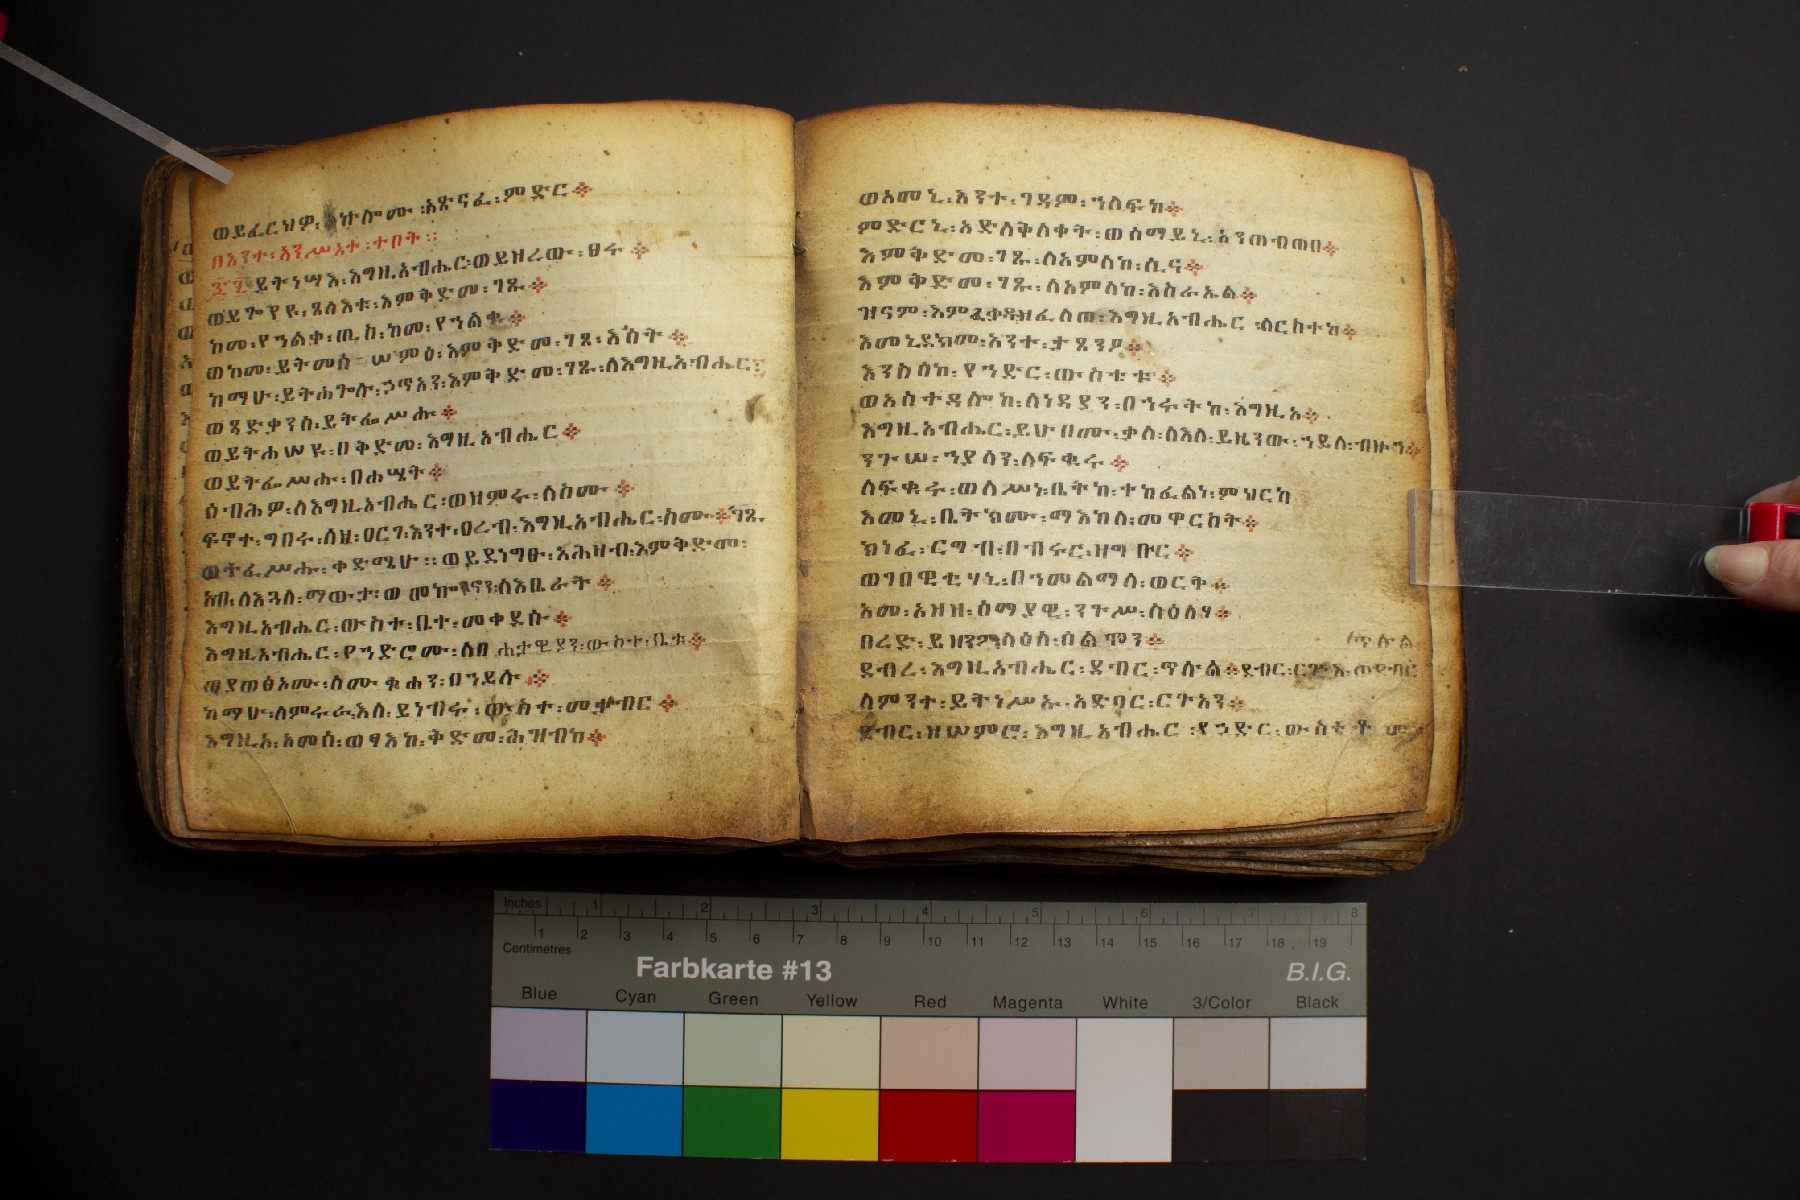 ወይፈርህዎ፡ ኵሎሙ ፡አጽናፈ ፡ ምድር፨
በእንተ፡ አንሥአተ ፡ ታቦት ።
፷፯ ይትነሣእ ፡ እግዚአብሔር፡ ወይዘረው ፡ ፀሩ ፨
ወይጐየዩ ፡ ጸላእቱ ፡ እምቅድመ ፡ ገጹ ፨
ከመ ፡ የኀልቀ ፡ ጢስ ፡ ከመ ፡ የኀልቁ ፨
ወከመ ፡ ይትመሰ ሠምዕ ፡ እምቅድመ ፡ ገጸ ፡ እሳት ፨
ከማሁ ፡ ይትሐጐሉ ፡ ኃጥአን ፡ እምቅድመ ፡ ገጹ ፡ ለእግዚአብሔር፨
ወጻድቃንሰ ፡ ይትፌሥሑ ፨
ወይትሐሠዩ ፡ በቅድመ ፡ እግዚአብሔር ፨
ወይትፌሥሑ ፡ በሐሤት ፨
ሰብሕዎ ፡ ለእግዚአብሔር ፡ ወዘምሩ ፡ ለስሙ ፨
ፍኖተ ፡ ግበሩ ፡ ለዘ ፡ ዐርገ ፡ እንተ ፡ ዐረብ ፡ እግዚአብሔር ፡ ስሙ ፨
ወትፈሥሑ ፡ ቀድሜሁ ። ወይደነግፁ ፡ አሕዛብ ፡ እምቅድመ ፡
አቡ ፡ ለእጓለ ፡ ማውታ ፡ ወ መኰንን ፡ ለእቤራት ፨
እግዚአብሔር ፡ ውስተ ፡ ቤተ ፡ መቀደሱ ፨
እግዚአብሔር ፡ የኀድሮሙ ፡ ለበ ሐታውያን ፡ ውስተ ፡ ቤቱ ፨
ወያወፅኦሙ ፡ ለሙቁሐን ፡ በኀይሉ ፨
ከማሁ ፡ ለምሩራ እለ ፡ ይነብሩ ፡ ውስተ ፡ መቃብር ፨
እግዚአ ፡ አመሰ ፡ ወፃእከ ፡ ቅድመ ፡ ሕዝብከ ፨
ወአመኒ ፡ እንተ ፡ ገዳም ፡ ኀለፍከ ፨
ምድርኒ ፡ አድለቅለቀት ፡ ወሰማይኒ ፡ አንጠብጠበ ፨
እምቅድመ ፡ ገጹ ፡ ለአምላከ ፡ ሲና ፨
እምቅድመ ፡ ገጹ ፡ ለአምላከ ፡ እስራኤል ፨
ዝናም ፡ ፈለጠ ፡ እግዚአብሔር ፡ ለርስተከ ፨
እመኒደክመ ፡ አንተ ፡ ታጸንዖ ፨
እንስሳከ ፡ የኀድር ፡ ውስቴቱ ፨
ወአስተዳሎከ ፡ ለነዳያን ፡ በኂሩትከ ፡ እግዚአ ፨
እግዚአብሔር ፡ ይሁበሙ ፡ ቃለ ፡ ለእለ ፡ ይዜንው ፡ ኀይለ ፡ ብዙኀ ፨
ንጉሠ ፡ ኀያላን ፡ ለፍቁሩ ፨
ለፍቁሩ ፡ ወለሥነ ፡ ቤትከ ፡ ተከፈልነ ፡ ምህርካ
እመኒ ፡ ቤትክሙ ፡ ማእከለ ፡ መዋርስት ፨
ክነፈ ፡ ርግብ ፡ በብሩር ፡ ዘግቡር ፨
ወገበዋቲሃኒ ፡ በኀመልማለ ፡ ወርቅ ፨
አመ ፡ አዘዘ ፡ ሰማያዊ ፡ ንጉሥ ፡ ላዕሌሃ ፨
በረድ ፡ ይ ሰልሞን ፨
ደብረ ፡ እግዚአብሔር ፡ ደብር ፡ ጥሉል ፨ ደብር ፡ ርጉእ ፡ ወደብር
ጥሉል
ለምንተ ፡ ይትነሥኡ ፡ አድባር ፡ ርጉአን ፨
ደብር ፡ ዘሠምሮ ፡ እግዚአብሔር ፡ የኃድር ፡ ውስቴቶ
Inches 1 2 3 4 5 6 7 8
1 2 3 4 5 6 7 8 9 10 11 12 13 14 15 16 17 18 19
Centimetres
Farbkarte #13
B.I.G.
Blue Cyan Green Yellow Red Magenta White 3/Color Black